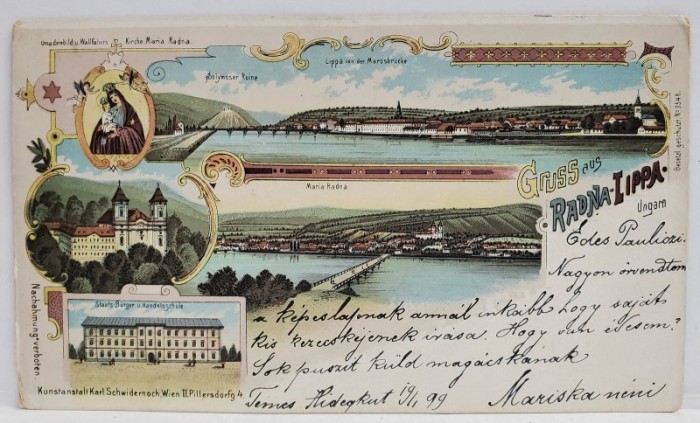 Gnadenbild u. Wallfahrts Kirche Maria Radna.
Solymoser Ruine
Lippa von der Marosbrücke
Gesetzl. geschützt No 354
Maria Radna
Gruss aus
RADNA-LIPPA.
Ungarn
Staats Bürger u. Handelsschule
Nachahmung verboten
Kunstanstalt Karl Schwidernoch, Wien II. Pillersdorfg 4
Édes Pauliczi.
Nagyon örvendtem
a képeslapnak annál inkább hogy saját
kis kezecskéjének irása. Hogy van édesem?
Sok puszit küld magácskának
Temes Hidegkut 19/1 99
Mariska néni